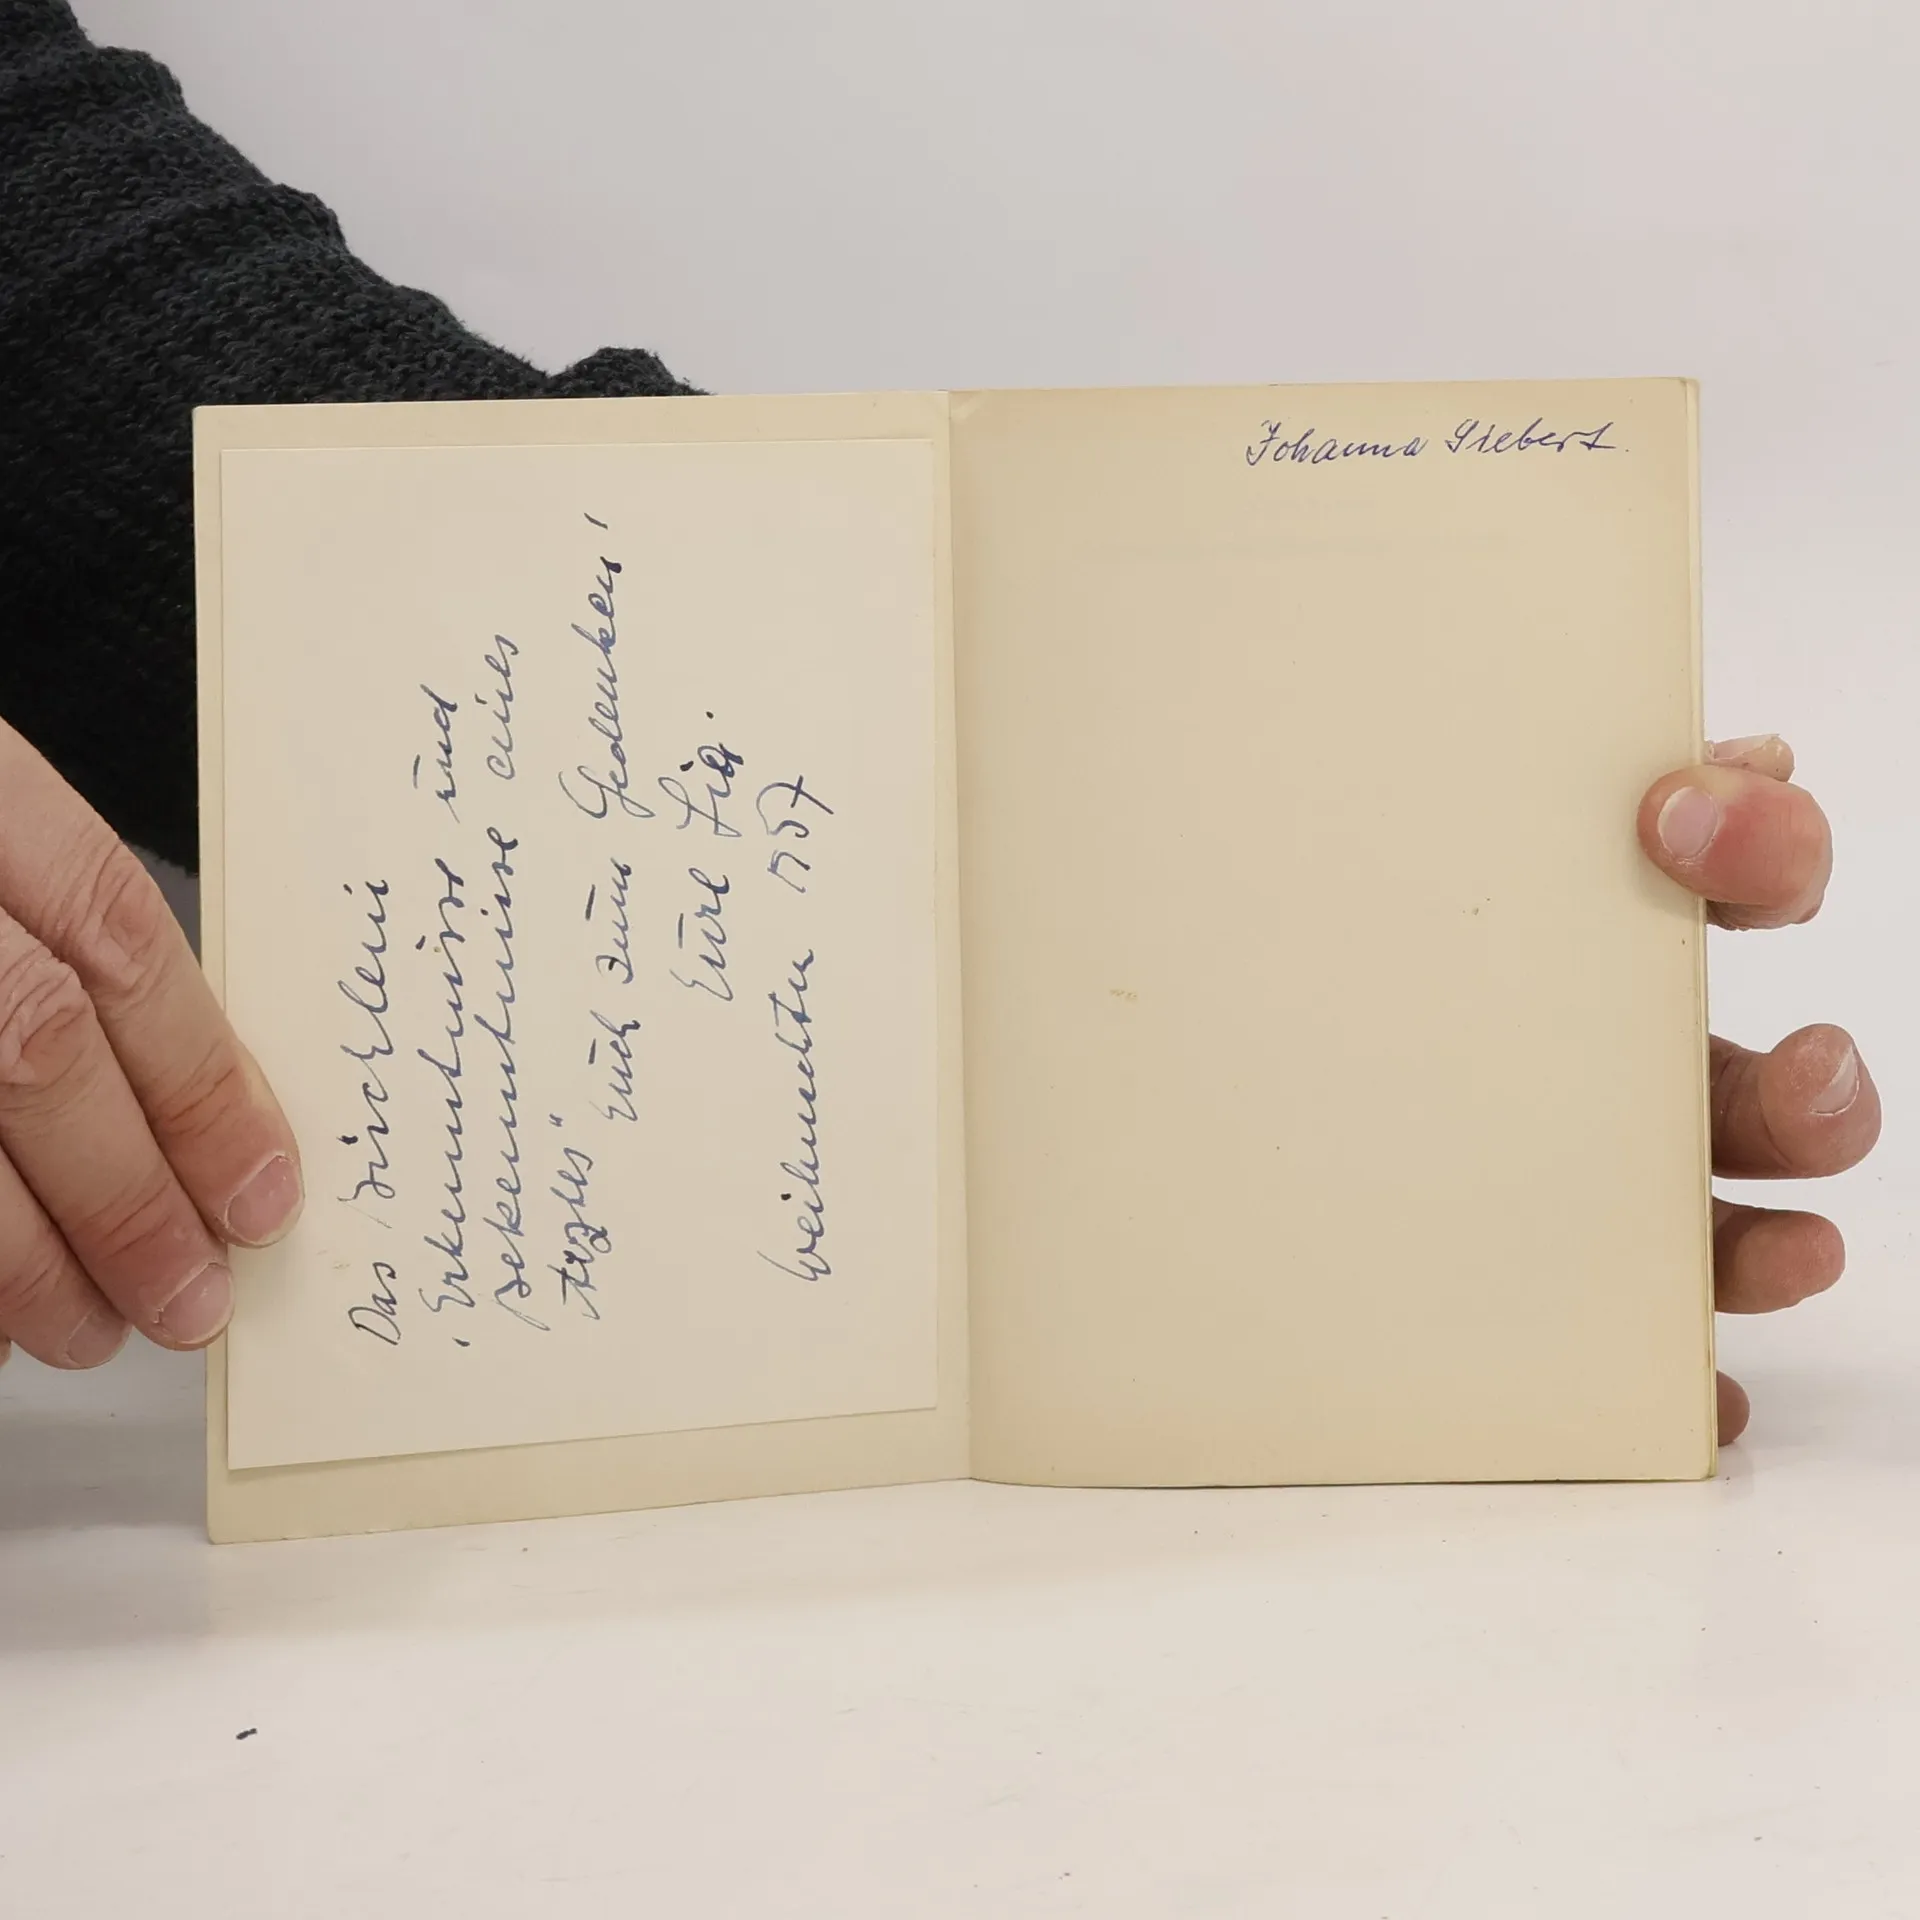 Das Büchlein
„Erkenntnisse und
Bekenntnisse eines
Arztes“
Euch zum Gedenken!
Eure
Weihnachten 1957
Johanna Siebert.